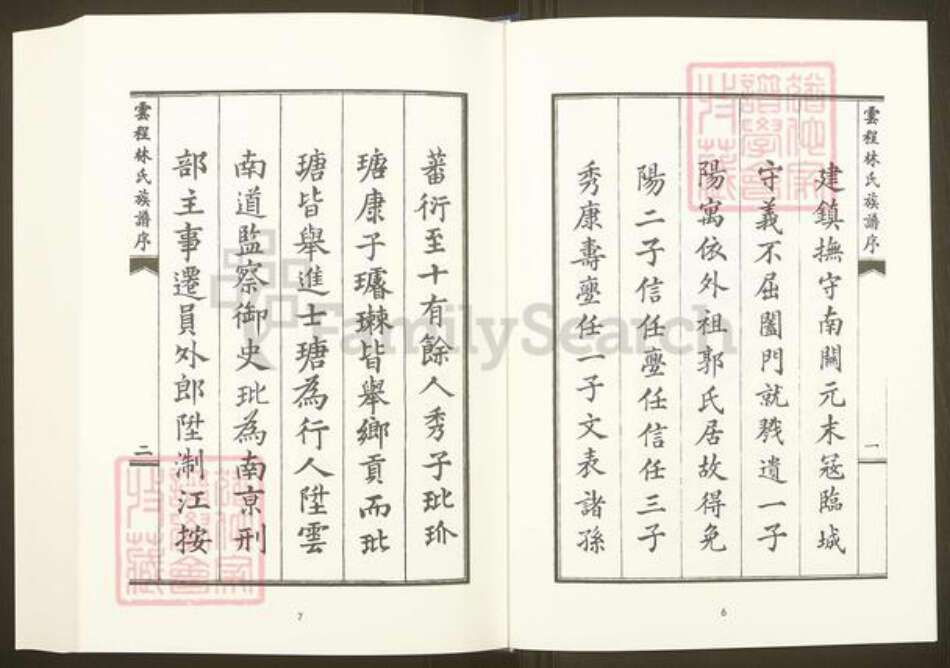 雲程林氏族譜序
一
建鎮撫守南關元末冦臨城
守義不屈闔門就戮遺一子
陽寓依外祖郭氏居故得免
陽二子信任壑任信任三子
秀康壽壑任一子文表諸孫
6
蕃衍至十有餘人秀子玭玠
瑭康子璿㻋皆舉鄉貢而玭
瑭皆舉進士瑭為行人陞雲
南道監察御史玭為南京刑
部主事遷員外郎陞淛江按
雲程林氏族譜序
二
7
FamilySearch